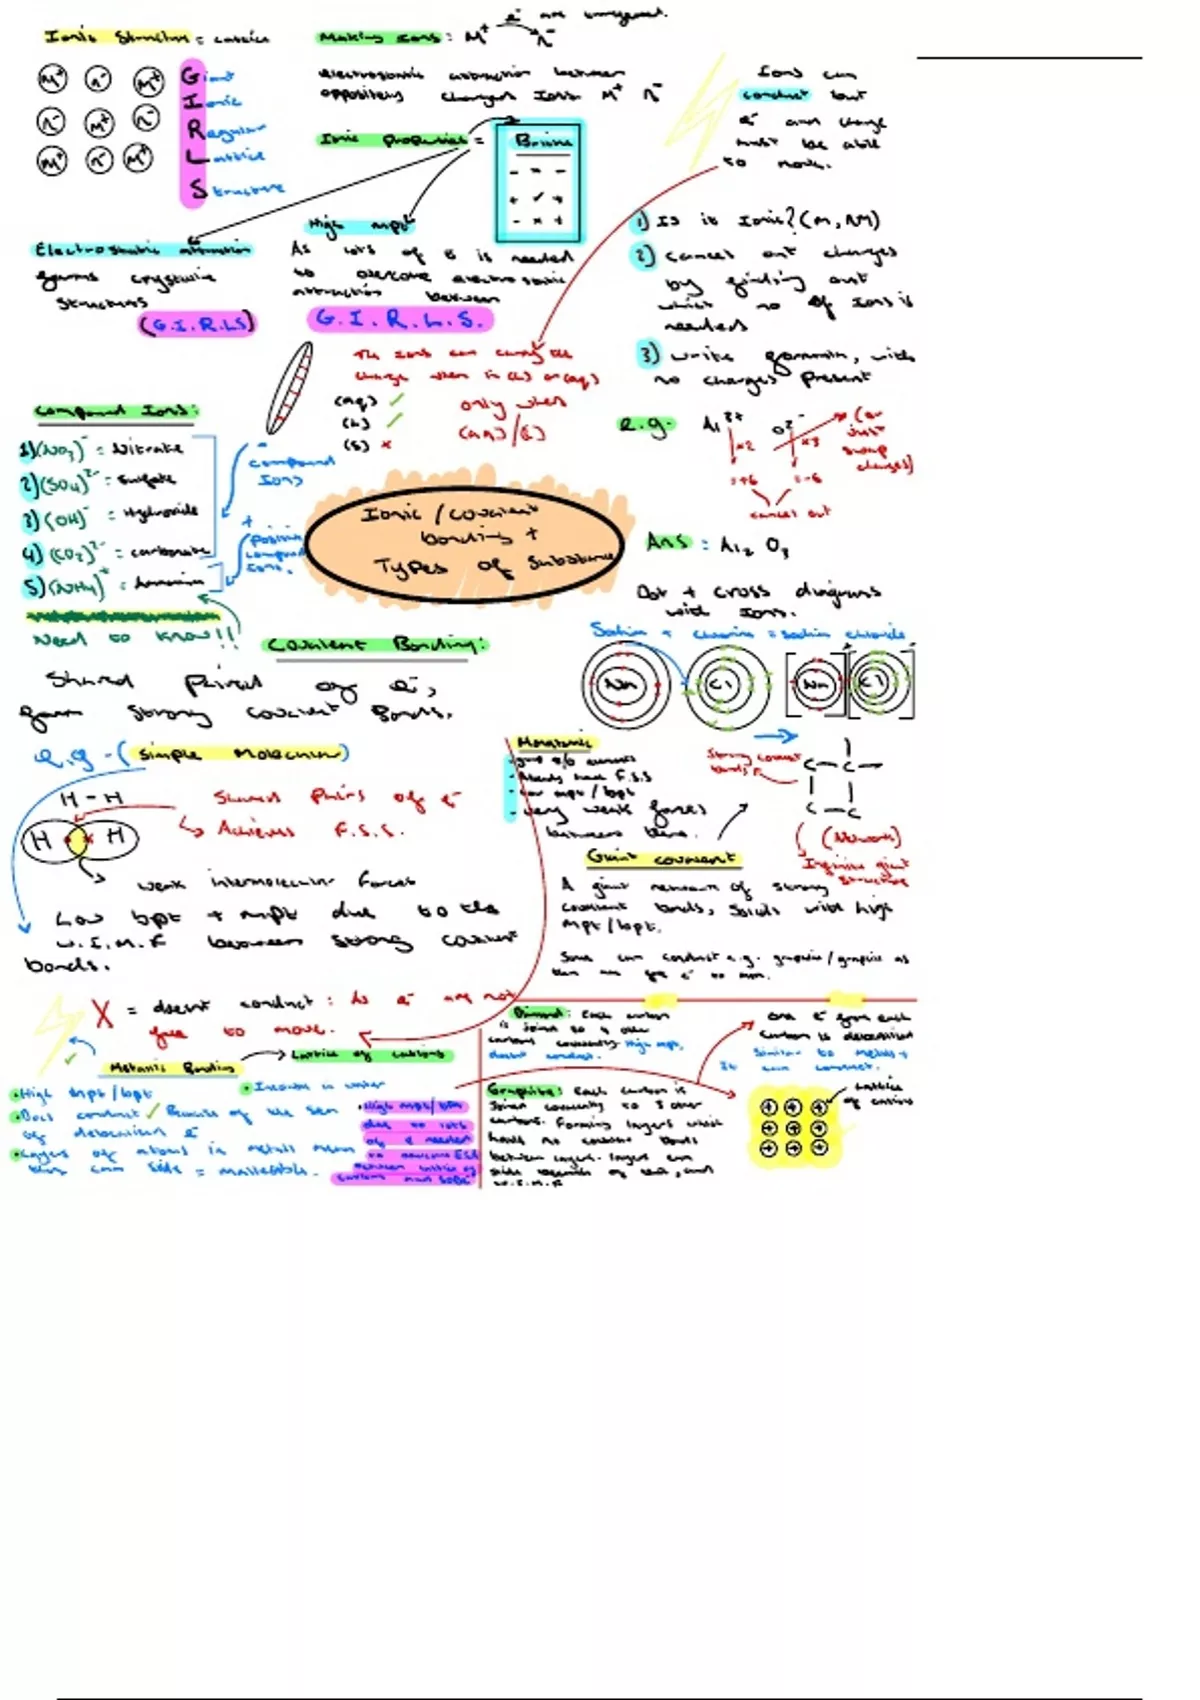 Ionic Structure = Lattice
M⁺ n⁻ M⁺
n⁻ M⁺ n⁻
M⁺ n⁻ M⁺
Giant
Ionic
Regular
Lattice
Structure
Making Ions: M⁺ e⁻ n⁻
electrostatic attraction between
oppositely charged Ions M⁺ n⁻
Ionic properties =
Brittle
Ions can
conduct but
e⁻ and charge
must be able
to move.
Electrostatic attraction
forms crystaline
structures
(G.I.R.L.S)
High mpt
As lots of e is needed
to overcome electrostatic
attraction between
G.I.R.L.S.
1) Is it Ionic? (M, NM)
2) cancel out charges
by finding out
which no of Ions is
needed
3) write formula, with
no charges present
The ions can carry the
charge when in (l) or (aq)
(aq) ✓
(l) ✓
(s) x
only when
(aq)/(l)
e.g. Al³⁺ O²⁻
x2 x3
=+6 =-6
cancel out
(or
just
swap
charges)
Ans : Al₂ O₃
Compound Ions:
1) (NO₃)⁻ = Nitrate
2) (SO₄)²⁻ = Sulfate
3) (OH)⁻ = Hydroxide
4) (CO₃)²⁻ = carbonate
5) (NH₄)⁺ = Ammonium
Need to know!!
- compound
Ions
+
positive
compound
Ions.
Ionic / covalent
bonding +
Types of Substance
Dot + cross diagrams
with Ions.
Sodium + chlorine = sodium chloride
Na Cl Na Cl
Covalent Bonding:
Shared Paired of e⁻,
form strong covalent bonds.
e.g - (simple Molecular)
H - H
H H
Shared Pairs of e⁻
Achieves F.S.S.
weak intermolecular forces
Low bpt + mpt due to the
W.I.M.F between strong covalent
bonds.
X = doesnt conduct: As e⁻ are not
free to move.
Monatomic
Already have F.S.S
low mpt / bpt
very weak forces
between them.
Strong covalent
bonds
C - C
C - C
(Network)
Infinite giant
structure
Giant covalent
A giant network of strong
covalent bonds, Solids with high
mpt / bpt.
Some can conduct e.g. graphite/graphene as
Metallic Bonding
Lattice of cations
High mpt/bpt
Insoluble in water
Does conduct ✓ Because of the sea
of delocalised e⁻
Layers of atoms in metals mean
they can slide = malleable.
High mpt/bpt
due to lots
of e needed
to overcome ESA
between lattice of
cations and SODE
Diamond: Each carbon
is joined to 4 other
carbons covalently High mpt,
doesnt conduct.
one e⁻ from each
carbon is delocalised
Similar to Metals +
It can conduct.
Graphite: Each carbon is
Joined covalently to 3 other
carbons. Forming layers which
have no covalent bonds
between layers. layers can
W.I.M.F
Lattice
of cations
+ + +
+ + +
+ + +